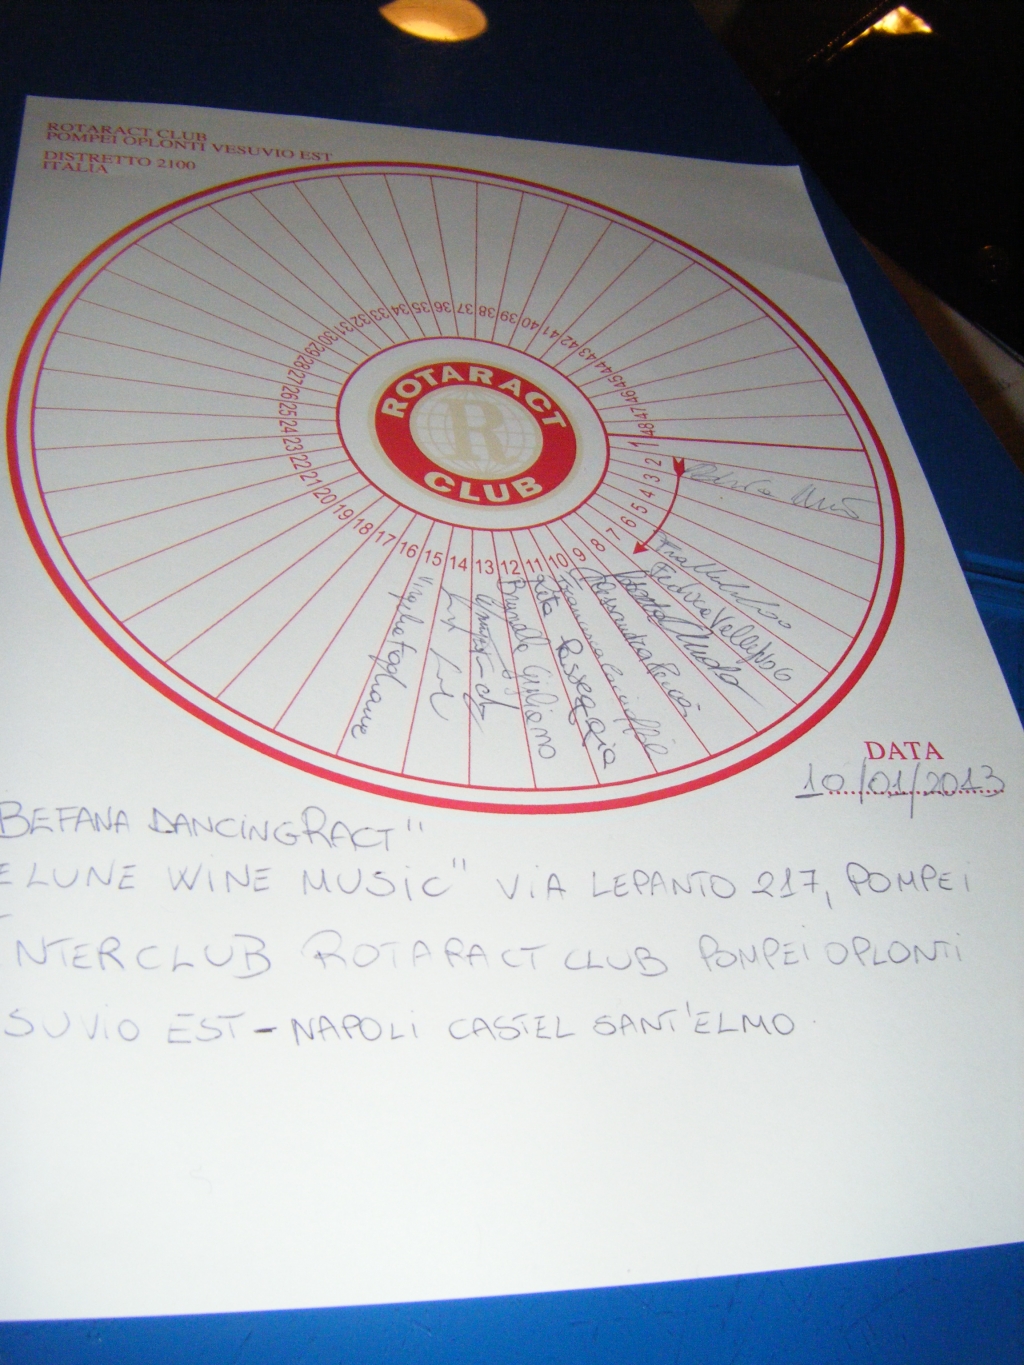 ROTARACT CLUB
POMPEI OPLONTI VESUVIO EST
DISTRETTO 2100
ITALIA
ROTARACT
R
CLUB
1 2 3 4 5 6 7 8 9 10 11 12 13 14 15 16 17 18 19 20 21 22 23 24 25 26 27 28 29 30 31 32 33 34 35 36 37 38 39 40 41 42 43 44 45 46 47 48
Federica Vellippo
Alessandra
Francesca
Rita Posseggia
Brunella Giuliano
DATA
10/01/2013
BEFANA DANCINGRACT"
E LUNE WINE MUSIC" VIA LEPANTO 217, POMPEI
NTERCLUB ROTARACT CLUB POMPEI OPLONTI
SUVIO EST - NAPOLI CASTEL SANT'ELMO